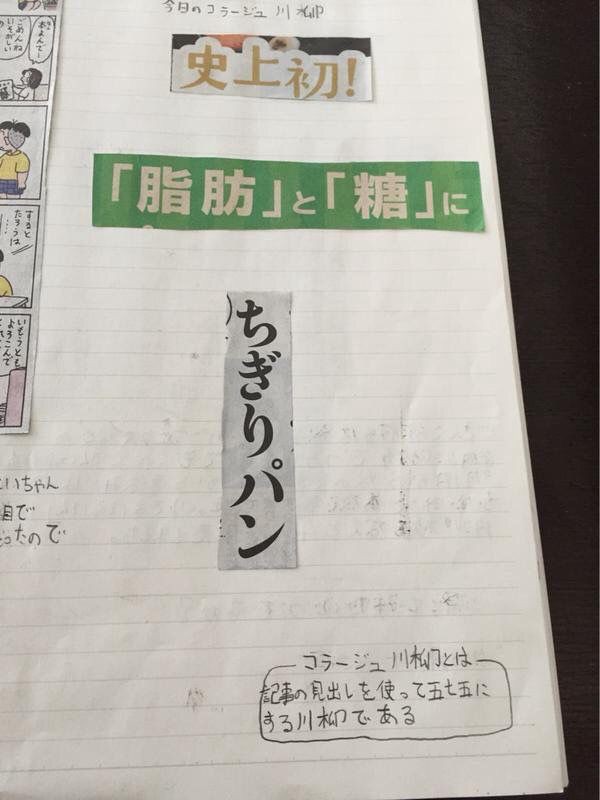 今日のコラージュ川柳
史上初!
「脂肪」と「糖」に
ちぎりパン
コラージュ川柳とは
記事の見出しを使って五七五に
する川柳である
ごめんね
いそがしい
すると
たろうは
いもうとも
よろこんで
いちゃん
目で
ったので